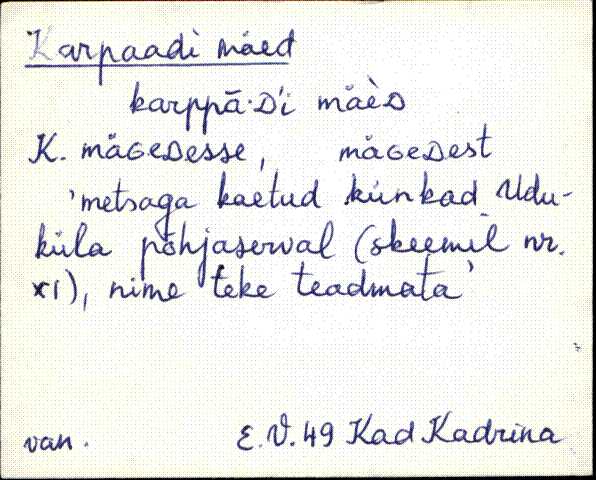 Karpaadi mäed
karppā·ᴅ'i mäèᴅ
K. mäɢeᴅesse, mäɢeᴅest
'metsaga kaetud künkad Udu-
küla põhjaserval (skeemil nr.
XI), nime teke teadmata'
van. E.V. 49 Kad Kadrina